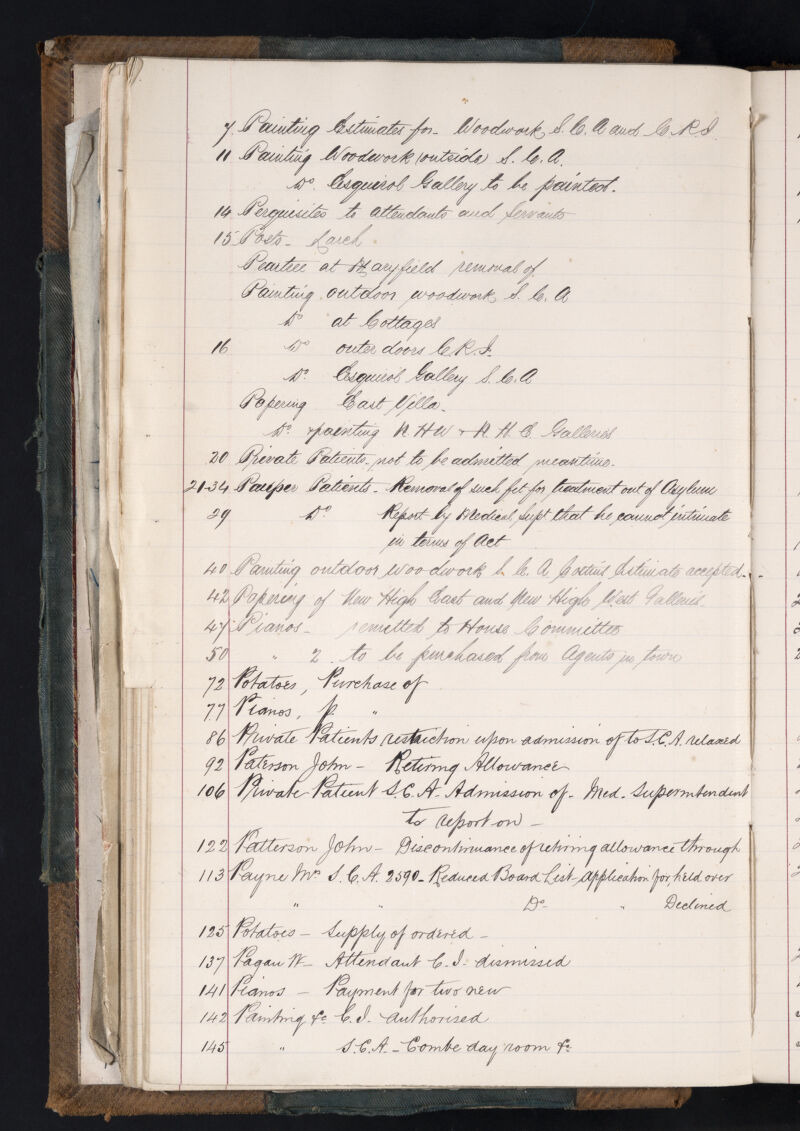 7 Painting Estimates for Woodwork S.C.A and C.R.I.
11 Painting Woodwork outside S.C.A.
Do. Esquirol Gallery to be painted.
14 Perquisites to attendants and servants
15 Posts - Larch
Peartree at Maryfield removal of
Painting outdoor woodwork S.C.A
Do at Cottages
16 Do outer doors C.R.I.
Do. Esquirol Gallery S.C.A
Papering East Villa.
Do. painting N.H.W & N.H.E. Galleries
20 Private Patients, not to be admitted meantime.
21-34 Pauper Patients - Removal of such fit for treatment out of Asylum
29 Do Report by Medical Supt that he cannot intimate
in terms of Act
40 Painting outdoor woodwork S.C.A. Estimate accepted
42 Papering of New High East and New High West Galleries.
47 Pianos - remitted to House Committee
50 " 2 to be purchased from Agents in town
72 Potatoes, Purchase of
77 Pianos, P. "
86 Private Patients restriction upon admission of to S.C.A. relaxed
92 Paterson John - Retiring Allowance
106 Private Patient S.C.A. Admission of - Med. Superintendent
to report on -
122 Patterson John - Discontinuance of retiring allowance through
113 Payne Mr S.C.A. 2590 - Reduced Board List - application for, held over
" " Do - " Declined
125 Potatoes - Supply of ordered -
137 Pagan W - Attendant C.I. dismissed
141 Pianos - Payment for two new
142 Painting &c C.I. authorised
145 " S.C.A. - Combe day room &c